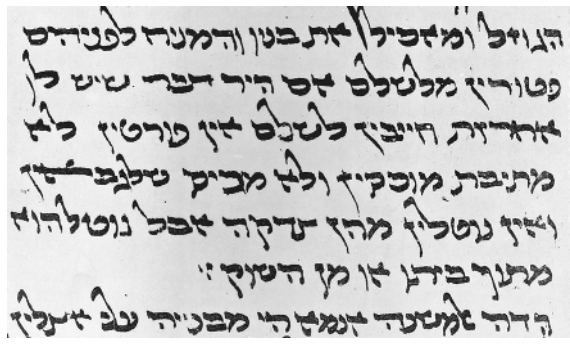 הגוזל ומאכיל את בניו והמניח לפניהם
פטורין מלשלם אם היה דבר שיש לו
אחריות חייבין לשלם אין פורטין לא
מתיבת מוכסין ולא מכיס שלגבאין
ואין נוטלין מהן צדקה אבל נוטל הוא
מתוך ביתו או מן השוק :
הדה מבנייה על אילין